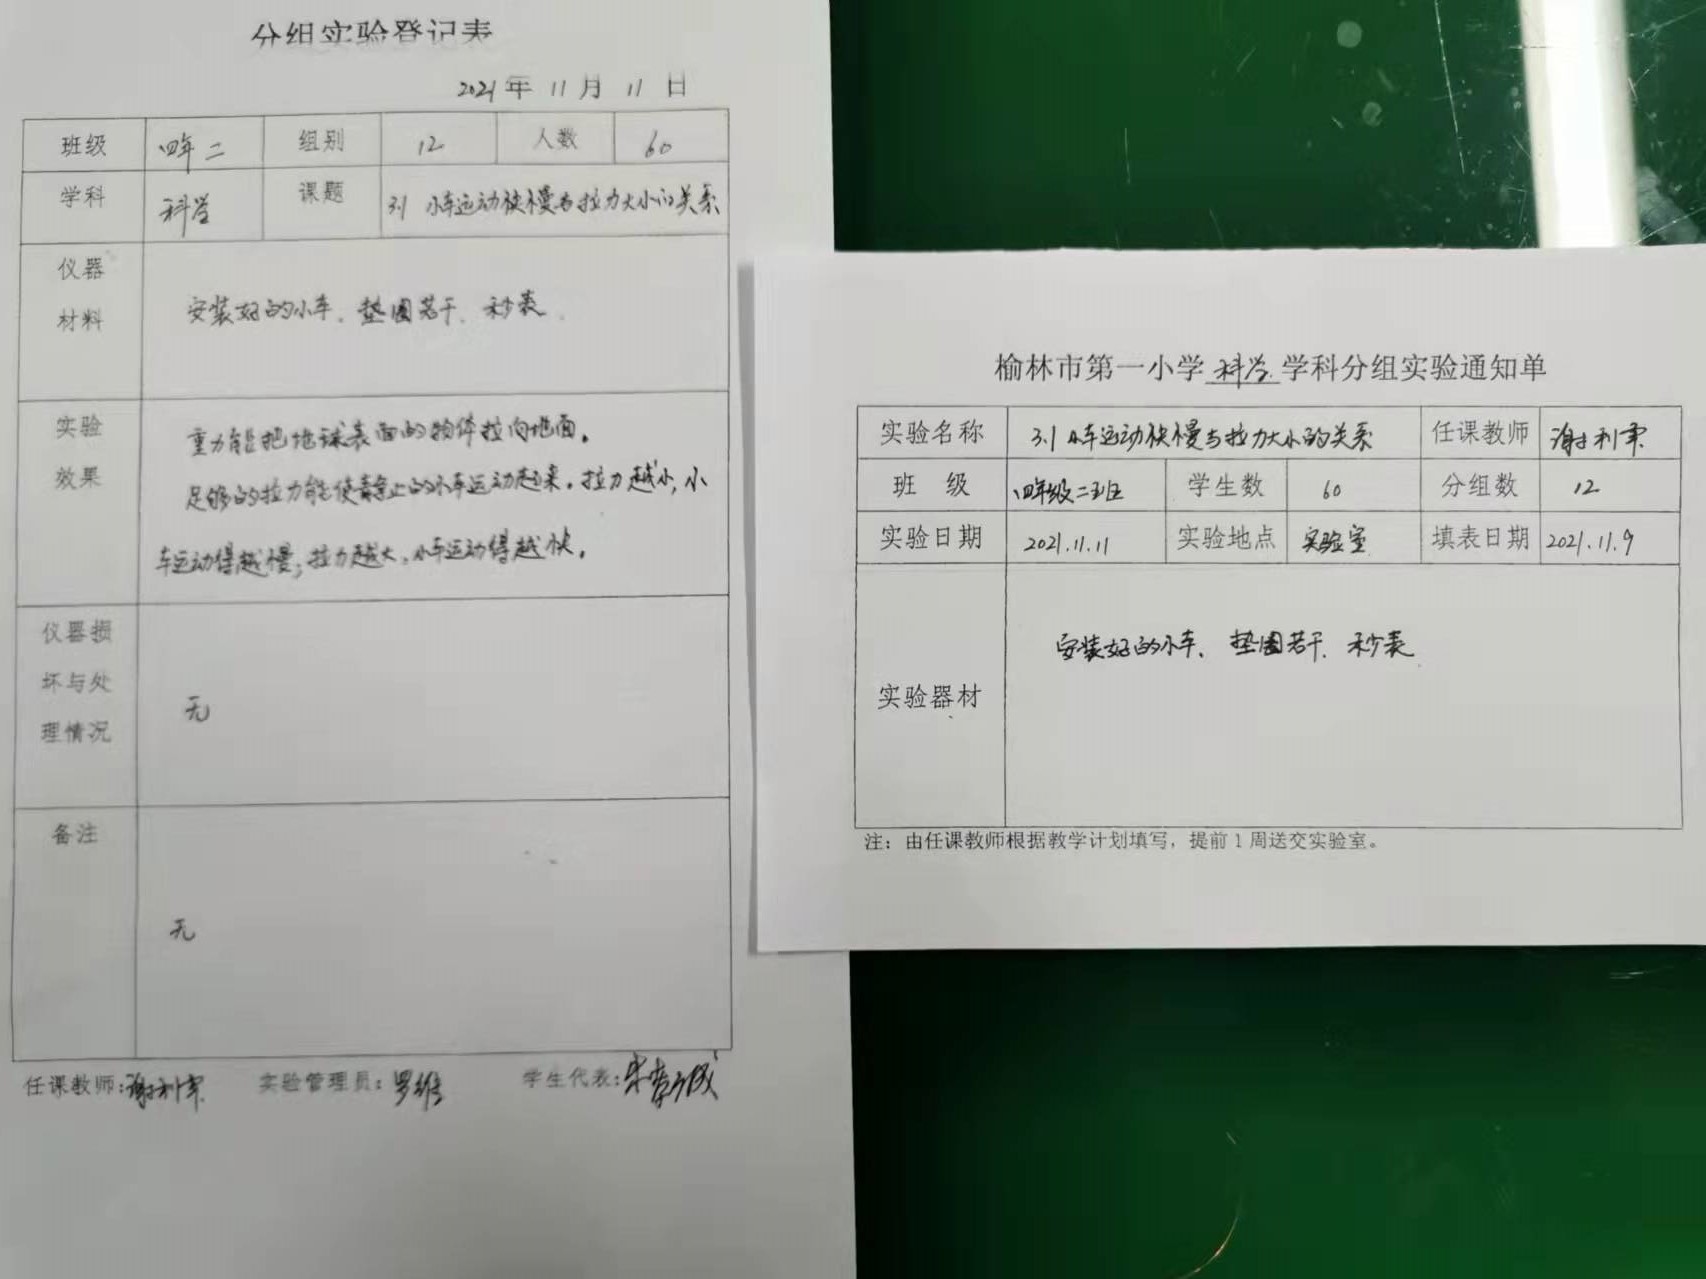 分组实验登记表
2021年 11月 11日
班级 四年二 组别 12 人数 60
学科 科学 课题 3.1 小车运动快慢与拉力大小的关系
仪器
材料
安装好的小车、垫圈若干、秒表
实验
效果
重力能把地球表面的物体拉向地面。
足够的拉力能使静止的小车运动起来。拉力越小,小
车运动得越慢;拉力越大,小车运动得越快。
仪器损
坏与处
理情况
无
备注
无
任课教师:谢利军 实验管理员:罗维 学生代表:
榆林市第一小学 科学 学科分组实验通知单
实验名称 3.1 小车运动快慢与拉力大小的关系 任课教师 谢利军
班 级 四年级二班 学生数 60 分组数 12
实验日期 2021.11.11 实验地点 实验室 填表日期 2021.11.9
实验器材
安装好的小车、垫圈若干、秒表
注：由任课教师根据教学计划填写，提前1周送交实验室。